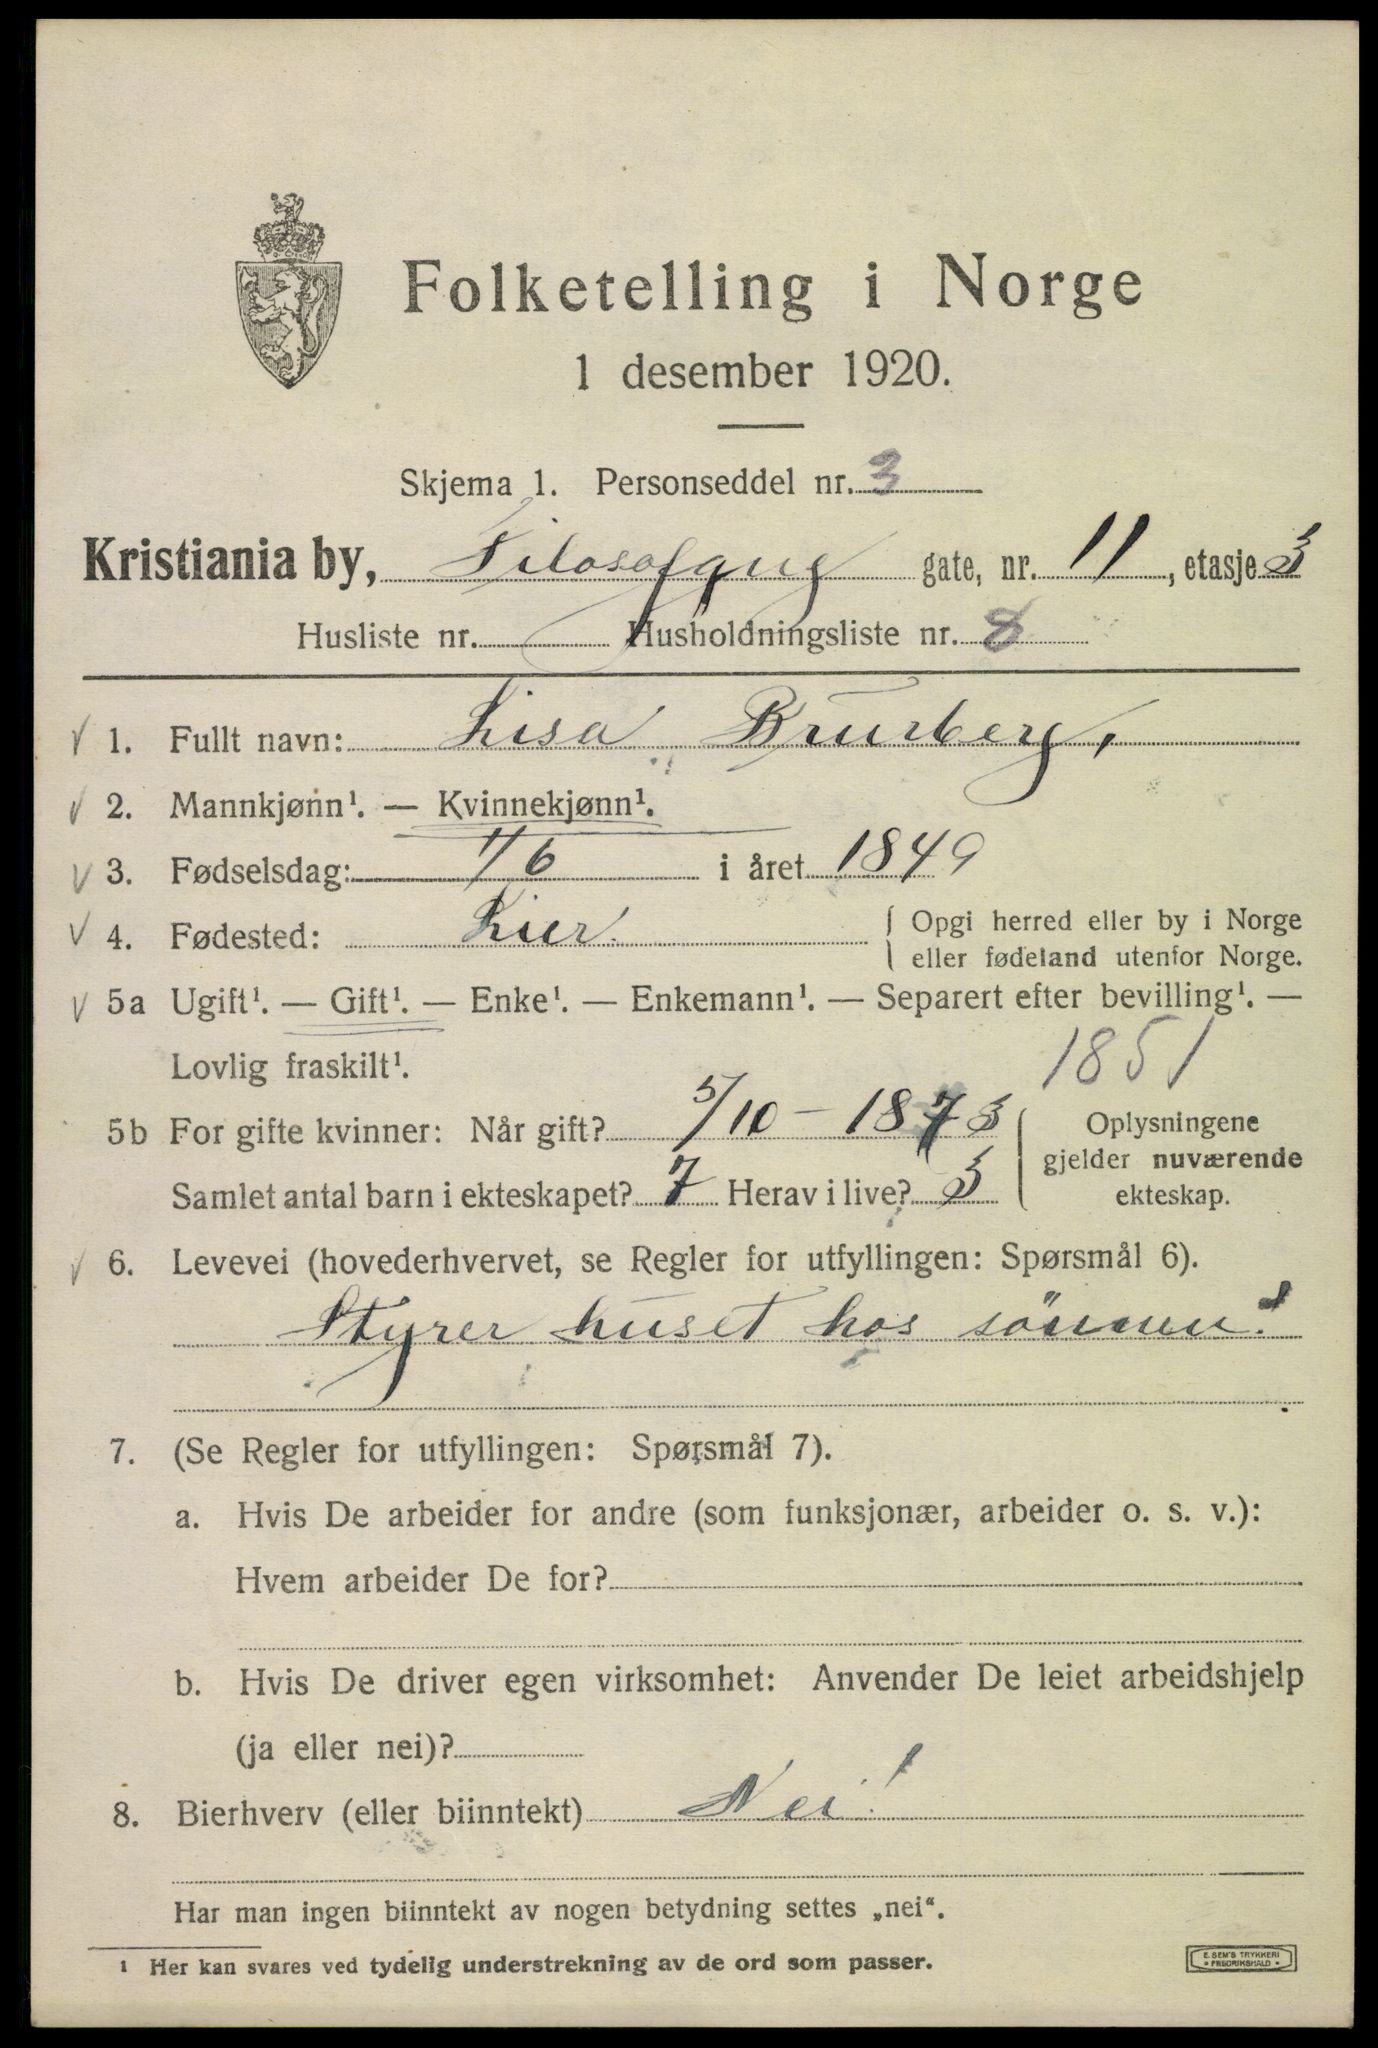 Folketelling i Norge
1 desember 1920.
Skjema 1. Personseddel nr. 3
Kristiania by, Filosofgug gate, nr. 11, etasje 3
Husliste nr. Husholdningsliste nr. 8
1. Fullt navn: Lisa Brurberg,
2. Mannkjønn¹. — Kvinnekjønn¹.
3. Fødselsdag: 1/6 i året 1849
4. Fødested: Lier. { Opgi herred eller by i Norge
eller fødeland utenfor Norge.
5a Ugift¹. — Gift¹. — Enke¹. — Enkemann¹. — Separert efter bevilling¹. —
Lovlig fraskilt¹. 1851
5b For gifte kvinner: Når gift? 5/10 – 1873
Samlet antal barn i ekteskapet? 7 Herav i live? 3
Oplysningene
gjelder nuværende
ekteskap.
6. Levevei (hovederhvervet, se Regler for utfyllingen: Spørsmål 6).
Styrer huset hos sönnen!
7. (Se Regler for utfyllingen: Spørsmål 7).
a. Hvis De arbeider for andre (som funksjonær, arbeider o. s. v.):
Hvem arbeider De for?
b. Hvis De driver egen virksomhet: Anvender De leiet arbeidshjelp
(ja eller nei)?
8. Bierhverv (eller biinntekt) Nei!
Har man ingen biinntekt av nogen betydning settes „nei“.
¹ Her kan svares ved tydelig understrekning av de ord som passer.
E. SEM'S TRYKKERI
FREDRIKSHALD